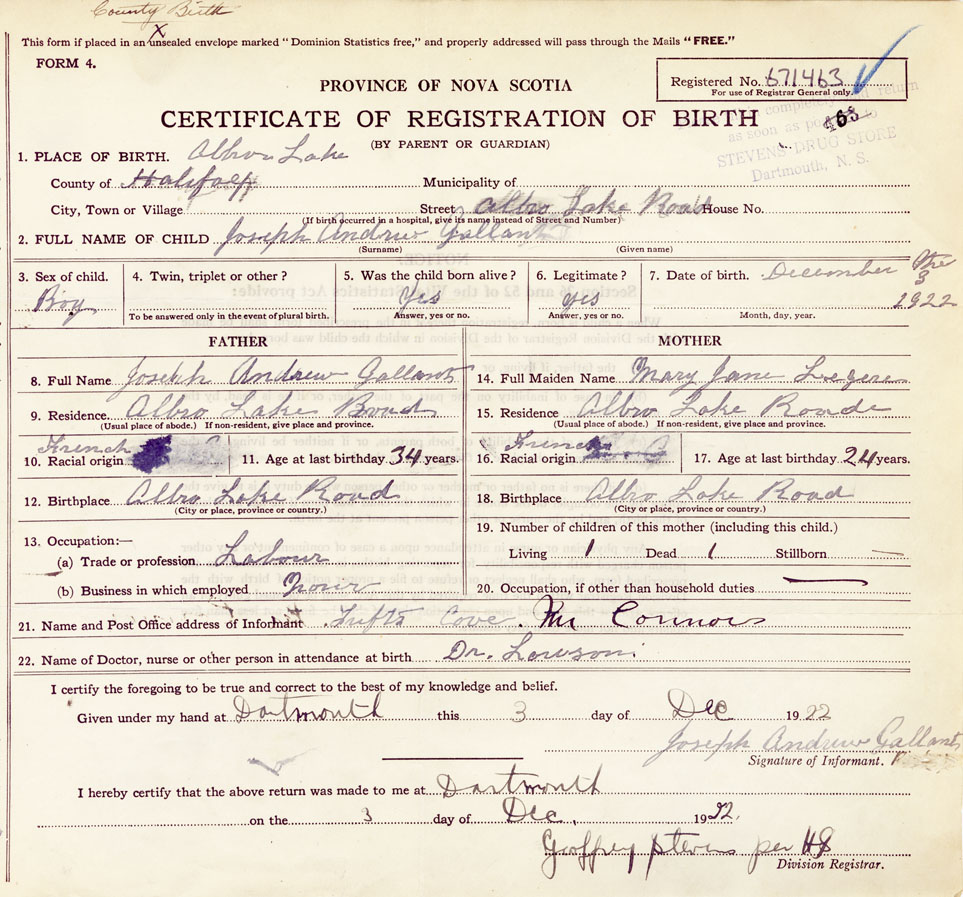 County Birth
This form if placed in an unsealed envelope marked "Dominion Statistics free," and properly addressed will pass through the Mails "FREE."
FORM 4.
PROVINCE OF NOVA SCOTIA
Registered No. 671463
For use of Registrar General only.
CERTIFICATE OF REGISTRATION OF BIRTH
(BY PARENT OR GUARDIAN)
return
as soon as
STEVENS DRUG STORE
Dartmouth, N. S.
1. PLACE OF BIRTH. Albro Lake
County of Halifax Municipality of
City, Town or Village Street Albro Lake Road House No.
(If birth occurred in a hospital, give its name instead of Street and Number)
2. FULL NAME OF CHILD Joseph Andrew Gallant
(Surname) (Given name)
3. Sex of child. Boy
4. Twin, triplet or other?
To be answered only in the event of plural birth.
5. Was the child born alive? Yes
Answer, yes or no.
6. Legitimate? yes
Answer, yes or no.
7. Date of birth. December the 3 1922
Month, day, year.
FATHER
8. Full Name Joseph Andrew Gallant
9. Residence. Albro Lake Road
(Usual place of abode.) If non-resident, give place and province.
10. Racial origin French
11. Age at last birthday 34 years.
12. Birthplace Albro Lake Road
(City or place, province or country.)
13. Occupation:—
(a) Trade or profession Labour
(b) Business in which employed
MOTHER
14. Full Maiden Name Mary Jane Legere
15. Residence Albro Lake Roade
(Usual place of abode.) If non-resident, give place and province.
16. Racial origin French
17. Age at last birthday 24 years.
18. Birthplace Albro Lake Road
(City or place, province or country.)
19. Number of children of this mother (including this child.)
Living 1 Dead 1 Stillborn —
20. Occupation, if other than household duties —
21. Name and Post Office address of Informant Tufts Cove. Mr Connors
22. Name of Doctor, nurse or other person in attendance at birth Dr. Lawson
I certify the foregoing to be true and correct to the best of my knowledge and belief.
Given under my hand at Dartmouth this 3 day of Dec 1922
Joseph Andrew Gallant
Signature of Informant.
I hereby certify that the above return was made to me at Dartmouth
on the 3 day of Dec. 1922.
Geoffrey Stevens per HS
Division Registrar.